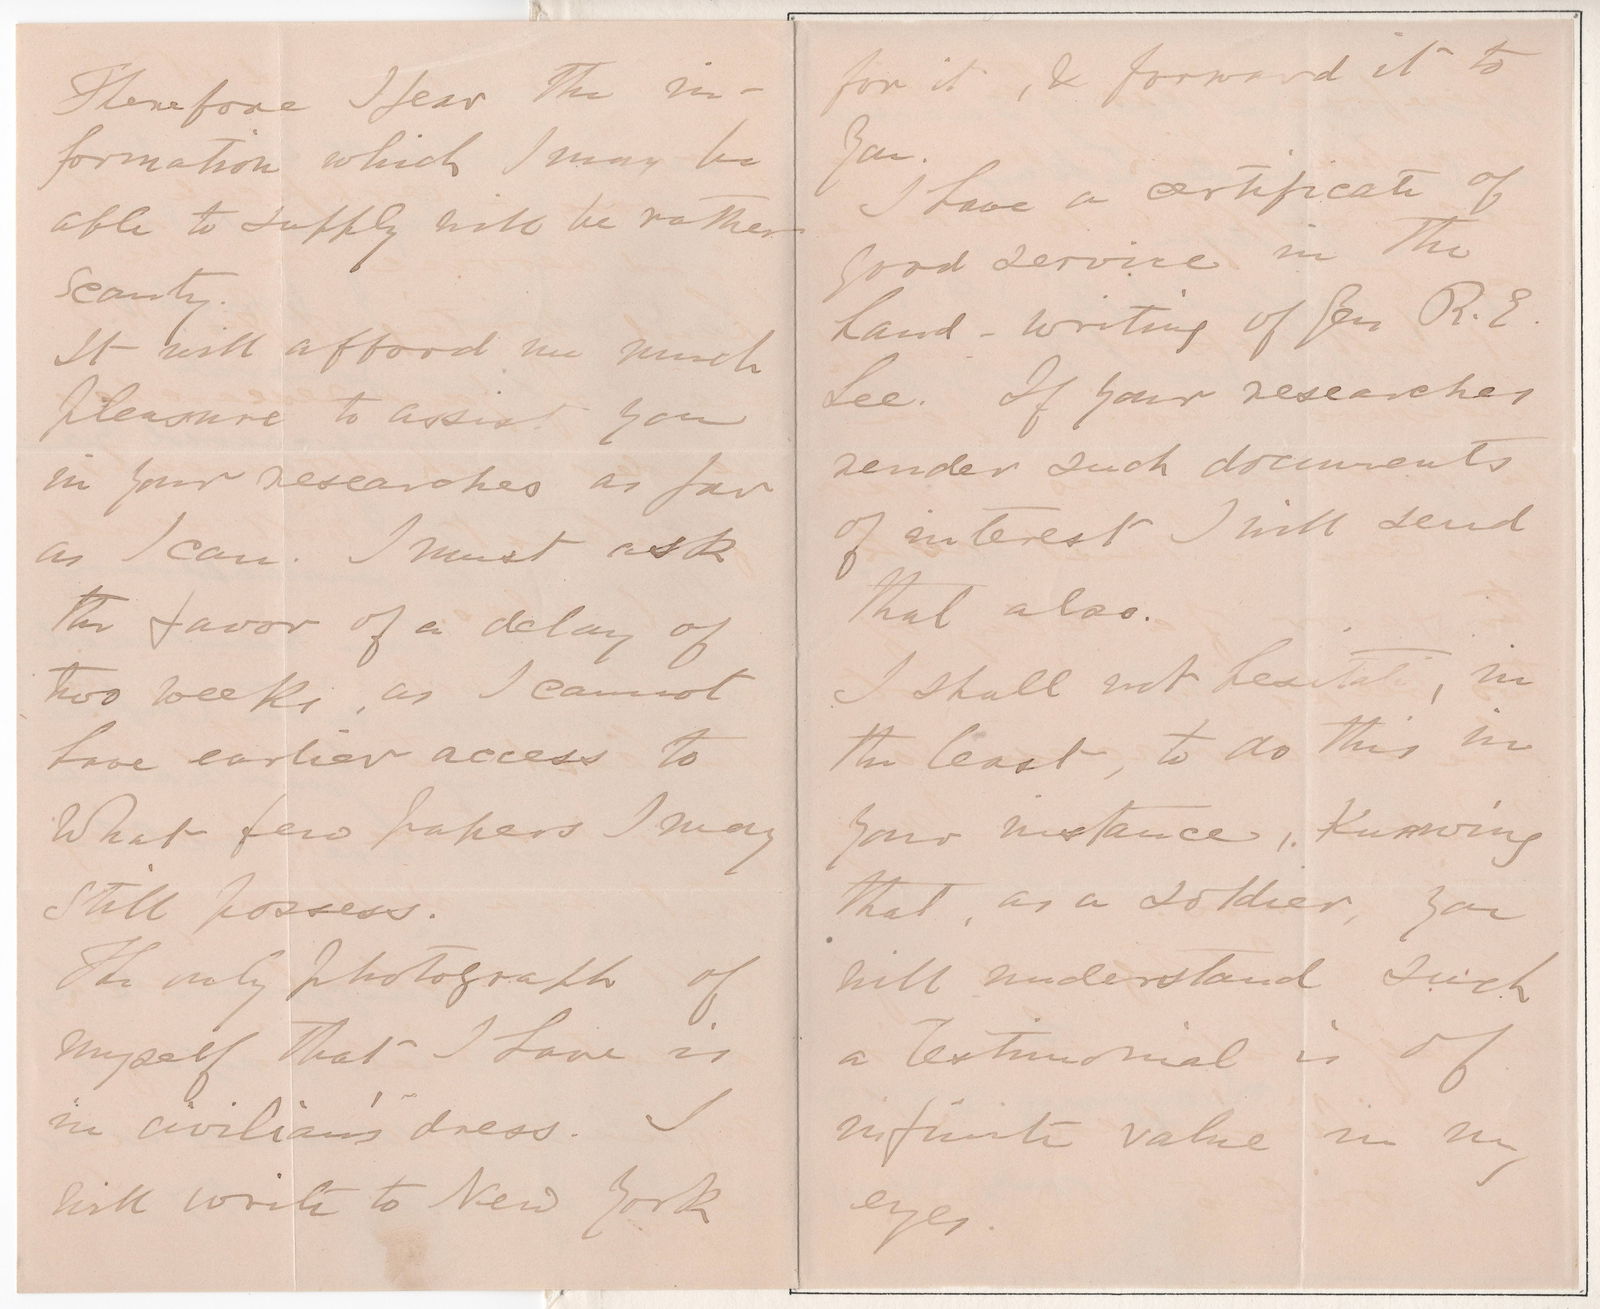 Therefore I fear the in-
formation which I may be
able to supply will be rather
scanty.
It will afford me much
pleasure to assist you
in your researches as far
as I can. I must ask
the favor of a delay of
two weeks, as I cannot
have earlier access to
what few papers I may
still possess.
The only photograph of
myself that I have is
in civilian's dress. I
will write to New York
for it, & forward it to
you.
I have a certificate of
good service in the
hand-writing of Gen R. E.
Lee. If your researches
render such documents
of interest I will send
that also.
I shall not hesitate, in
the least, to do this in
your instance, knowing
that, as a soldier, you
will understand such
a testimonial is of
infinite value in my
eyes.